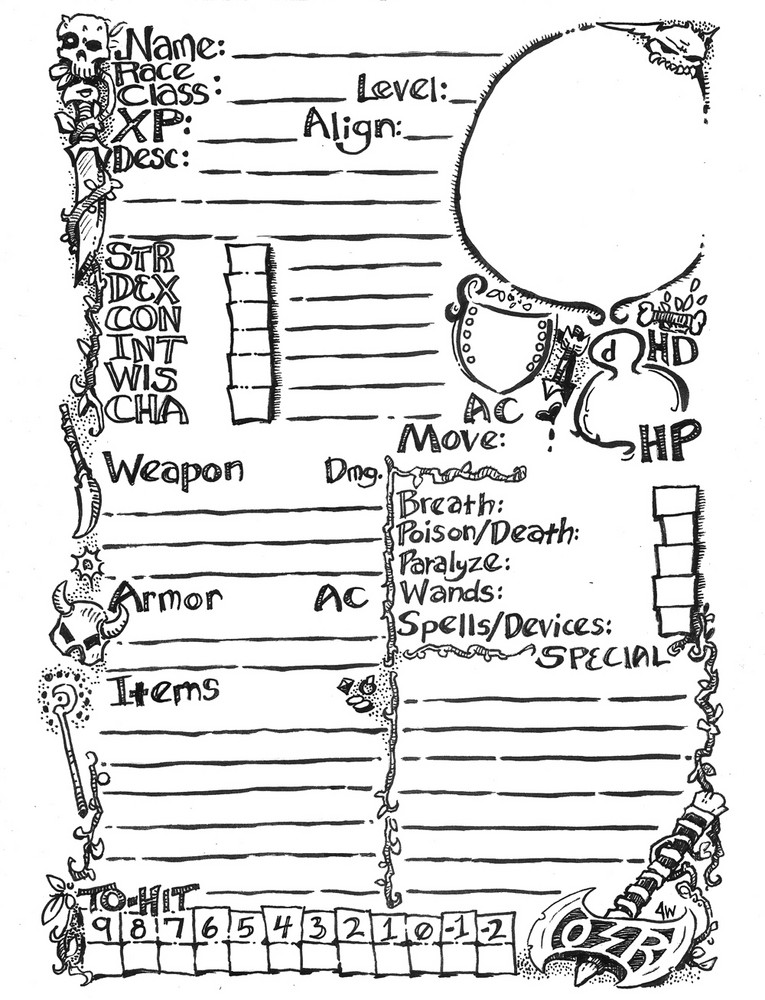 Name:
Race
Class: Level:
XP: Align:
Desc:
STR
DEX
CON
INT
WIS
CHA
AC
d HD
HP
Move:
Weapon Dmg.
Breath:
Poison/Death:
Paralyze:
Wands:
Spells/Devices:
Armor AC
SPECIAL
Items
TO-HIT
9 8 7 6 5 4 3 2 1 0 -1 -2
OZR